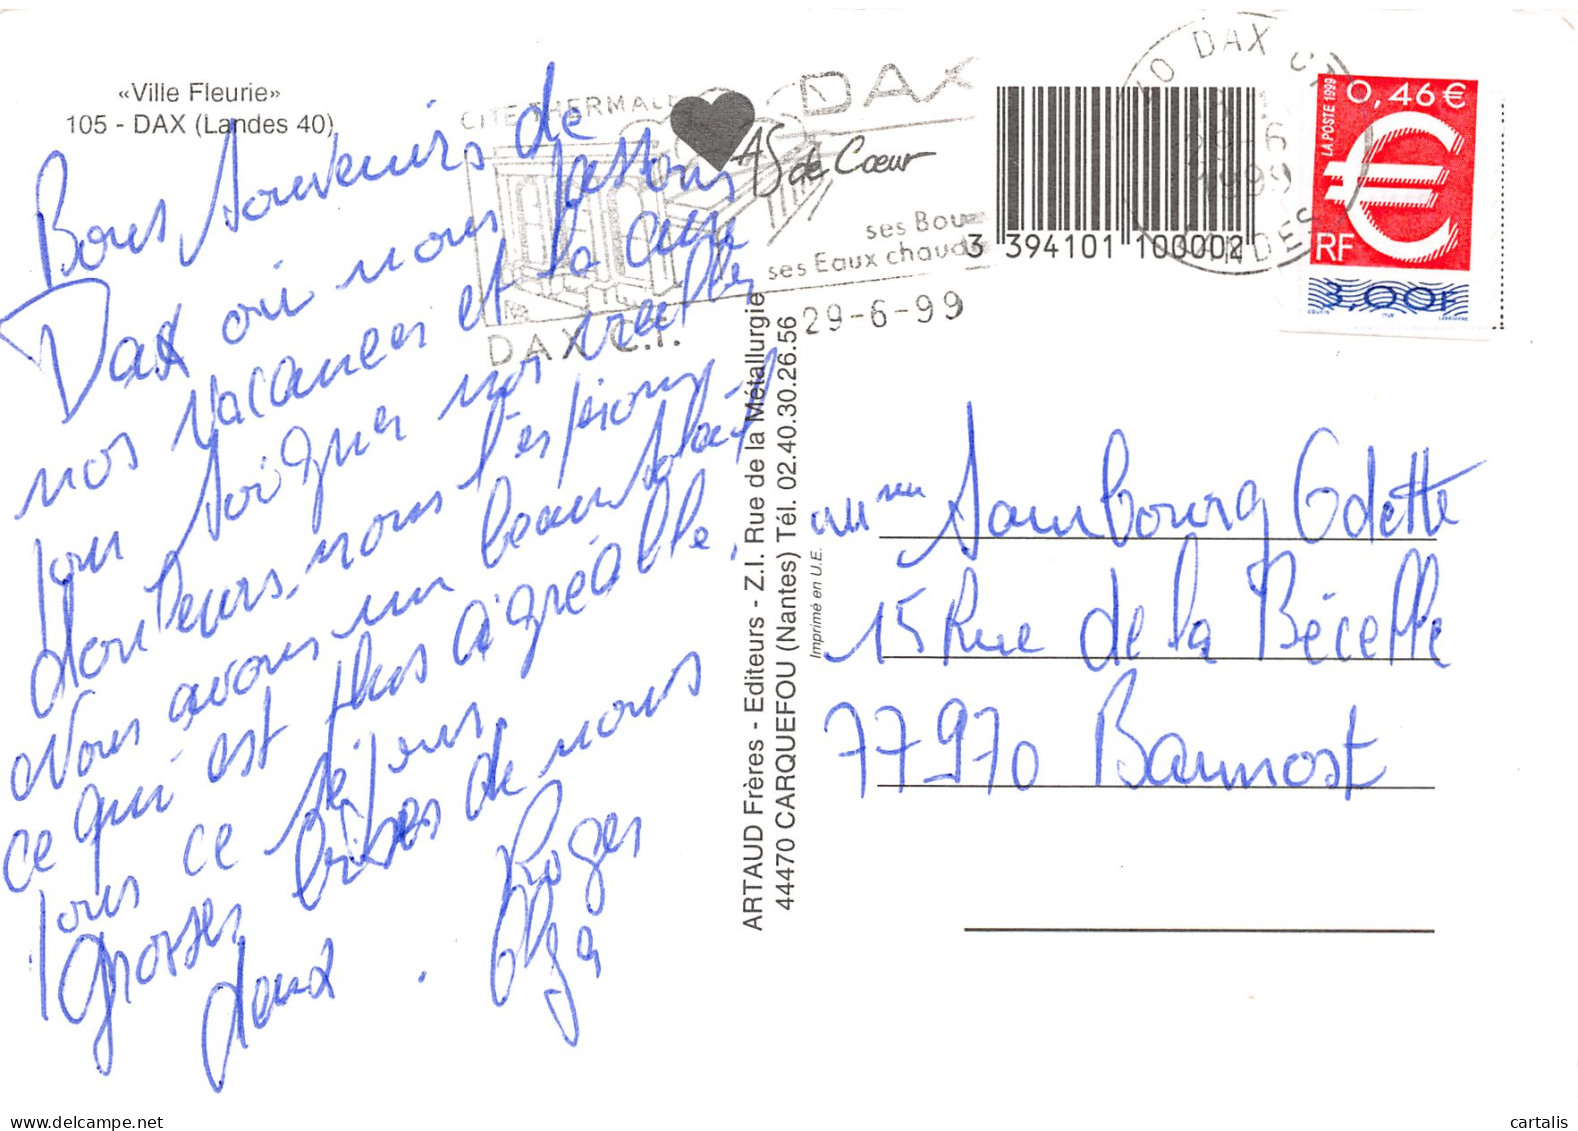 «Ville Fleurie»
105 - DAX (Landes 40)
Bons Souvenirs de
Dax où nous passons
nos vacances et la cure
pour soigner nos vieilles
douleurs, nous l'espérons.
Nous avons un beau soleil
ce qui est plus agréable,
pour ce séjour.
Grosses bises de nous
deux. Roger
Olga
CITE THERMALE
DAX
AS de Cœur
ses Boues
ses Eaux chaudes
DAX C.T.
29-6-99
3 394101 100002
40 DAX C.T.
1999
LANDES
LA POSTE 1999
0,46 €
RF
3,00F
ARTAUD Frères - Editeurs - Z.I. Rue de la Métallurgie
44470 CARQUEFOU (Nantes) Tél. 02.40.30.26.56
Imprimé en U.E.
Sambourg Odette
15 Rue de la Bécelle
77970 Bannost
cartalis